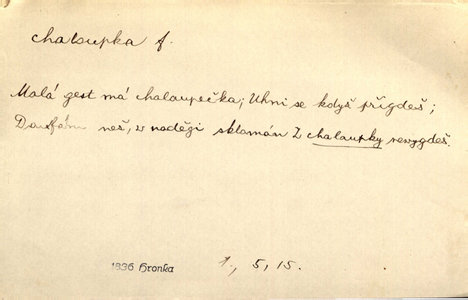 chaloupka f.
Malá gest má chalaupečka; Uhni se kdyš přigdeš;
Daufám neš, w naděgi sklamán Z chalaupky newygdeš.
1836 Hronka 1., 5, 15.